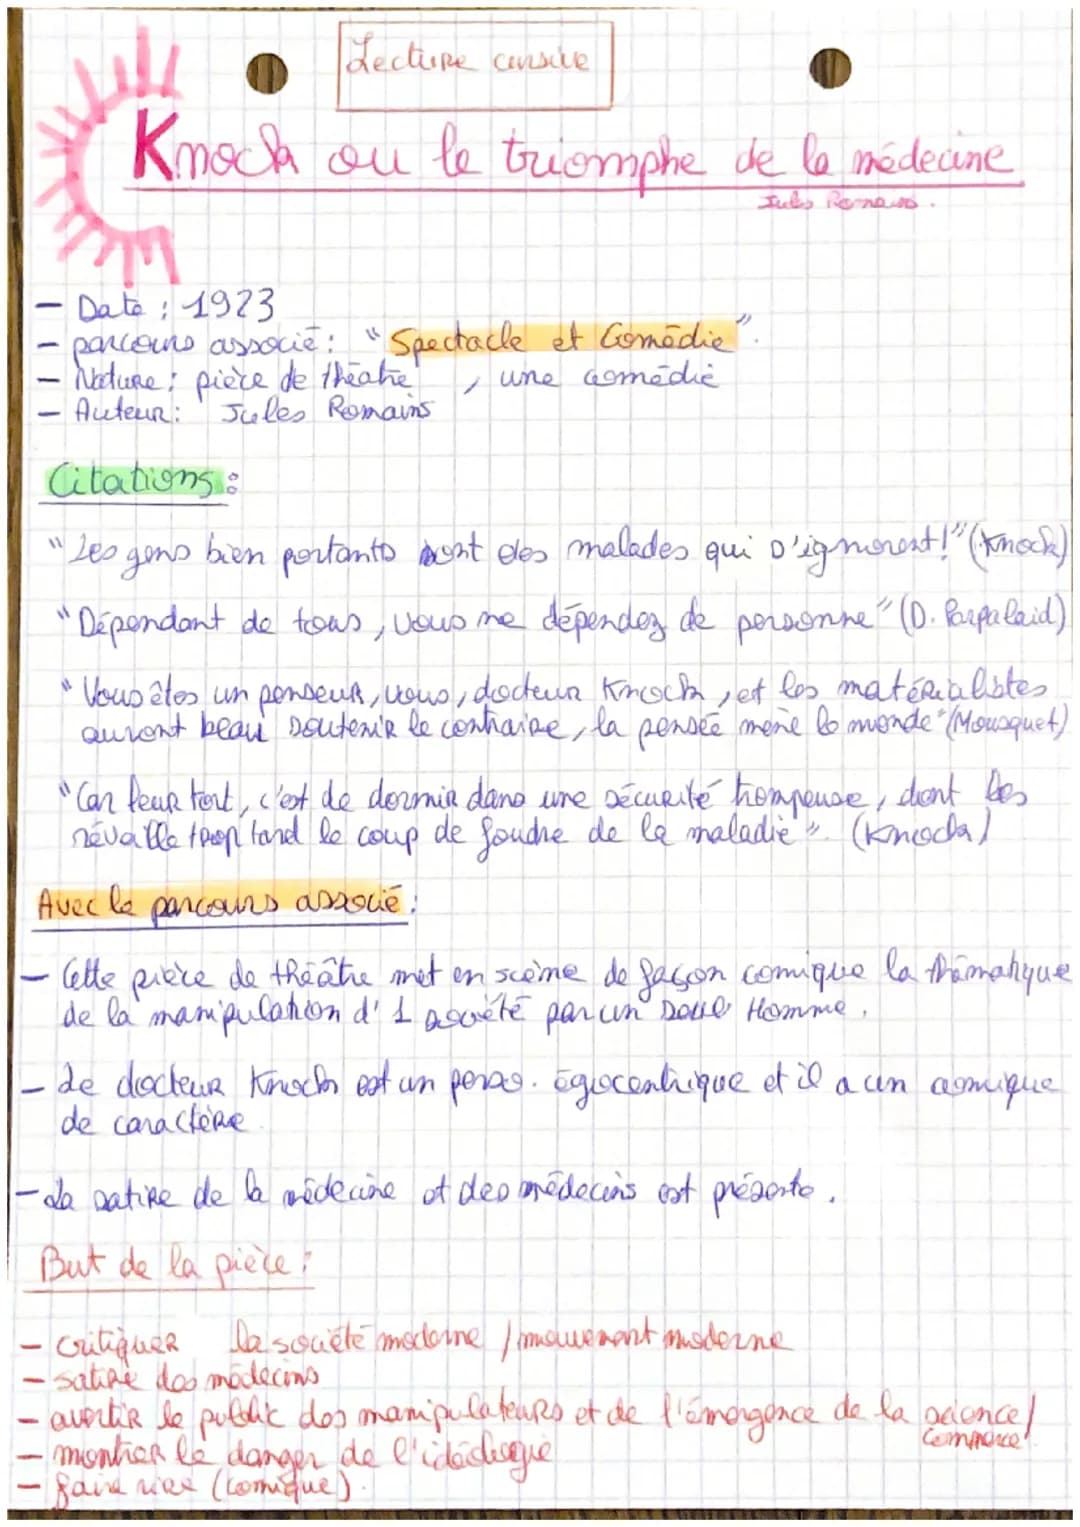 Lecture cursive
Knock ou le triomphe de la médecine
Jules Romains.
- Date : 1923
- parcours associé : "Spectacle et Comédie".
- Nature : pièce de théâtre, une comédie
- Auteur : Jules Romains
Citations :
"Les gens bien portants sont des malades qui s'ignorent!" (Knock)
"Dépendant de tous, vous ne dépendez de personne" (D. Parpalaid)
"Vous êtes un penseur, vous, docteur Knock, et les matérialistes
auront beau soutenir le contraire, la pensée mène le monde" (Mousquet)
"Car leur tort, c'est de dormir dans une sécurité trompeuse, dont les
réveille trop tard le coup de foudre de la maladie". (Knock)
Avec le parcours associé :
- Cette pièce de théâtre met en scène de façon comique la thématique
de la manipulation d'1 société par un seul Homme.
- Le docteur Knock est un perso. égocentrique et il a un comique
de caractère.
- La satire de la médecine et des médecins est présente.
But de la pièce :
- critiquer la société moderne / mouvement moderne
- satire des médecins
- avertir le public des manipulateurs et de l'émergence de la science/
commerce
- montrer le danger de l'idéologie
- faire rire (comique).